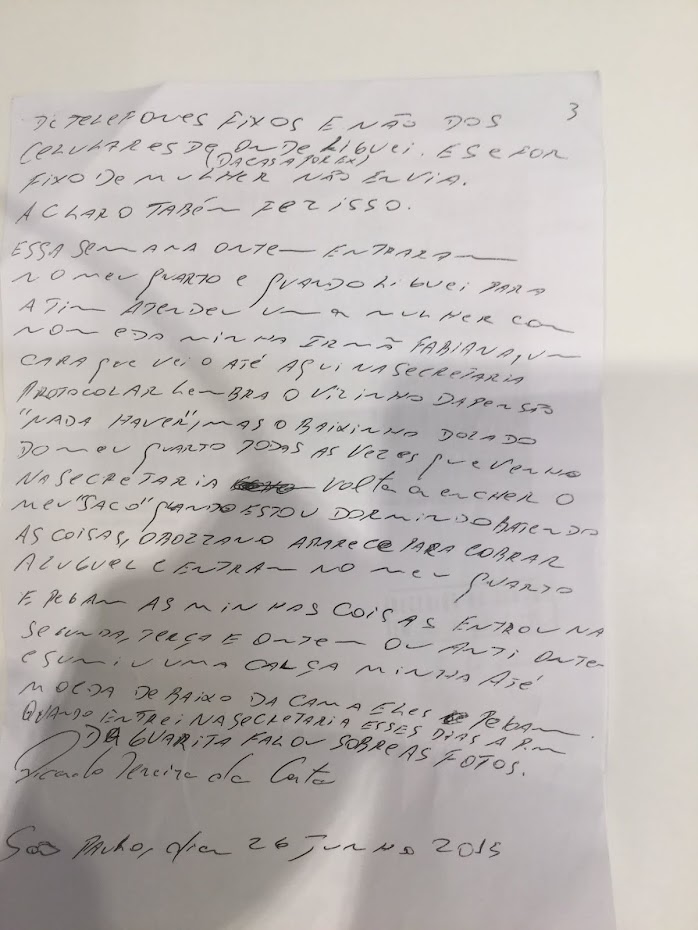 3
DE TELEFONES FIXOS E NÃO DOS
CELULARES DE ONDE LIGUEI. E SE FOR
(DA CASA POR EX)
FIXO DE MULHER NÃO ENVIA.
A CLARO TABÉM FEZ ISSO.
ESSA SEMANA ONTEM ENTRARAM
NO MEU QUARTO E QUANDO LIGUEI PARA
A TIM ATENDEU UMA MULHER COM
NOME DA MINHA IRMÃ FABIANA, UM
CARA QUE VEIO ATÉ AQUI NA SECRETARIA
PROTOCOLAR LEMBRA O VIZINHO DA PENSÃO
"NADA HAVER", MAS O BAIXINHO DO LADO
DO MEU QUARTO TODAS AS VEZES QUE VENHO
NA SECRETARIA VOLTA A ENCHER O
MEU "SACO" QUANDO ESTOU DORMINDO BATENDO
AS COISAS, O APARECE PARA COBRAR
ALUGUEL E ENTRAM NO MEU QUARTO
E PEGAM AS MINHAS COISAS ENTROU NA
SEGUNDA, TERÇA E ONTEM OU ANTI ONTEM
E SUMIU UMA CALÇA MINHA ATÉ
MOEDA DE BAIXO DA CAMA ELES PEGAM.
QUANDO ENTREI NA SECRETARIA ESSES DIAS A PM
DA GUARITA FALOU SOBRE AS FOTOS.
Ricardo Pereira da Costa
São PAULO, dia 26 JUNHO 2015